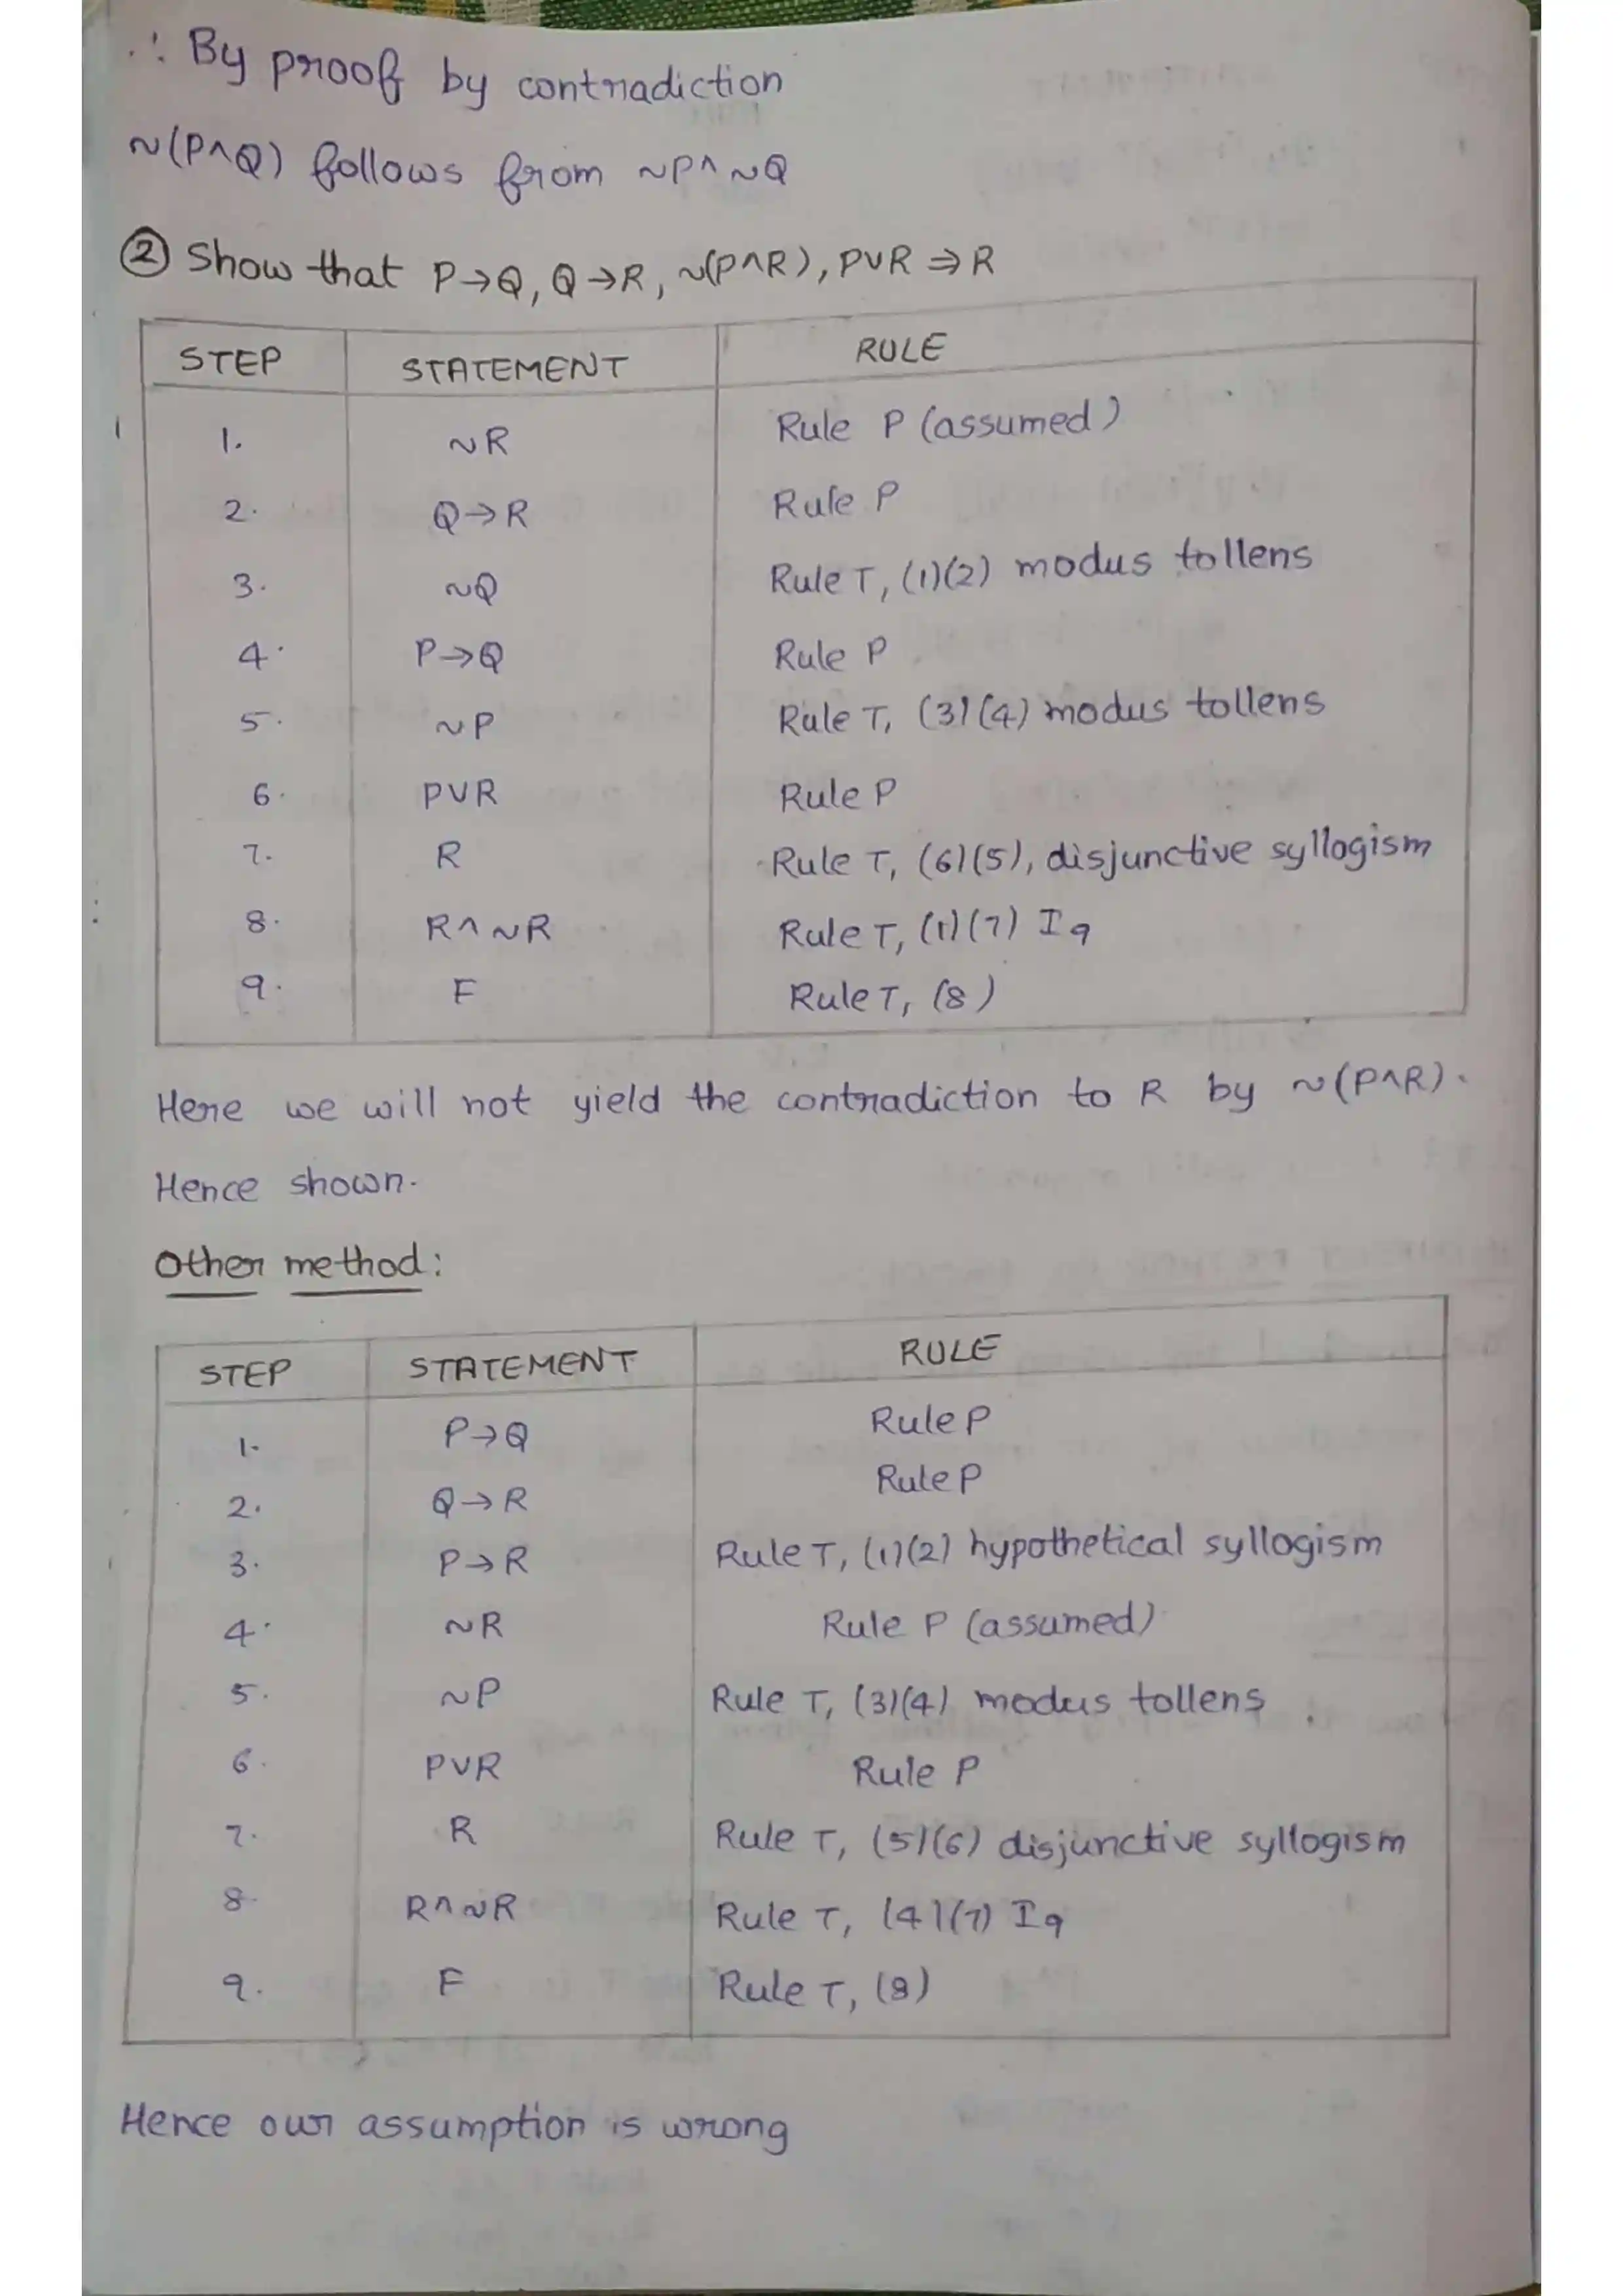 ∴ By proof by contradiction
~(P∧Q) follows from ~P∧~Q
② Show that P→Q, Q→R, ~(P∧R), P∨R ⇒ R
STEP STATEMENT RULE
1. ~R Rule P (assumed)
2. Q→R Rule P
3. ~Q Rule T, (1)(2) modus tollens
4. P→Q Rule P
5. ~P Rule T, (3)(4) modus tollens
6. P∨R Rule P
7. R Rule T, (6)(5), disjunctive syllogism
8. R∧~R Rule T, (1)(7) I9
9. F Rule T, (8)
Here we will not yield the contradiction to R by ~(P∧R).
Hence shown.
Other method:
STEP STATEMENT RULE
1. P→Q Rule P
2. Q→R Rule P
3. P→R Rule T, (1)(2) hypothetical syllogism
4. ~R Rule P (assumed)
5. ~P Rule T, (3)(4) modus tollens
6. P∨R Rule P
7. R Rule T, (5)(6) disjunctive syllogism
8. R∧~R Rule T, (4)(7) I9
9. F Rule T, (8)
Hence our assumption is wrong